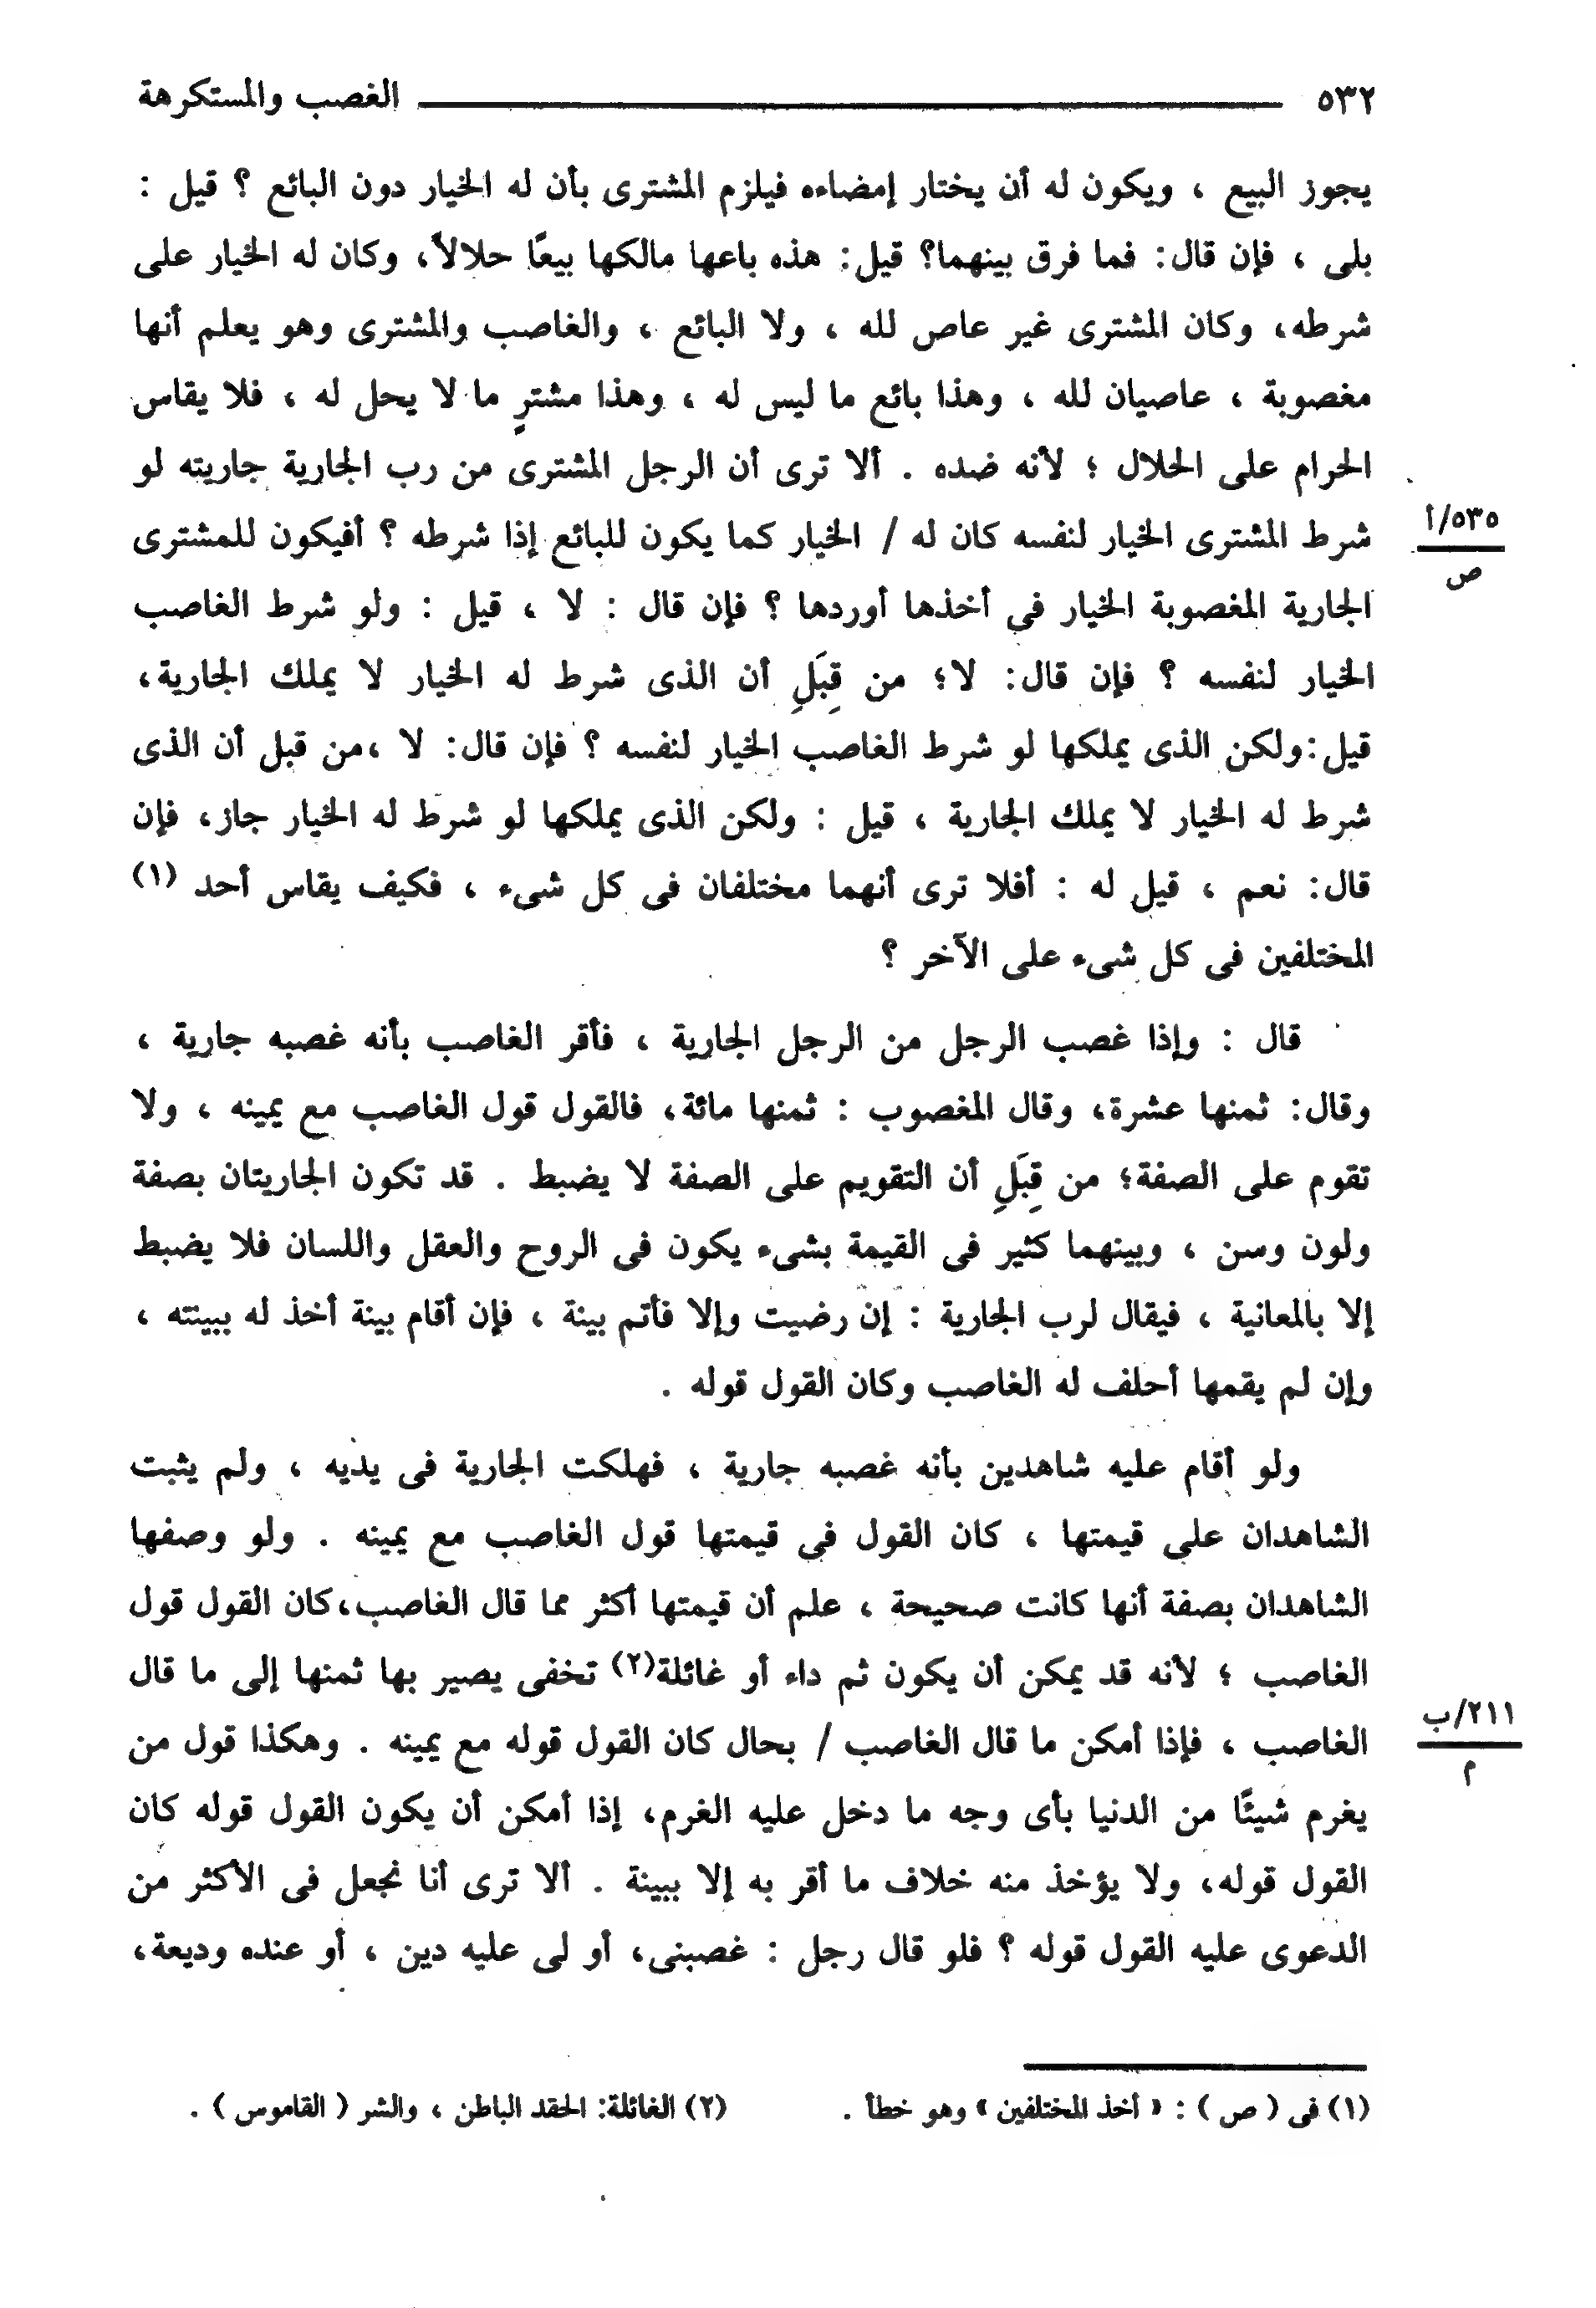 ٥٣٢ الغصب والمستكرهة
يجوز البيع ، ويكون له أن يختار إمضاءه فيلزم المشترى بأن له الخيار دون البائع ؟ قيل :
بلى ، فإن قال: فما فرق بينهما؟ قيل: هذه باعها مالكها بيعًا حلالاً، وكان له الخيار على
شرطه، وكان المشترى غير عاص لله ، ولا البائع ، والغاصب والمشترى وهو يعلم أنها
مغصوبة ، عاصيان لله ، وهذا بائع ما ليس له ، وهذا مشترٍ ما لا يحل له ، فلا يقاس
الحرام على الحلال ؛ لأنه ضده . ألا ترى أن الرجل المشترى من رب الجارية جاريته لو
شرط المشترى الخيار لنفسه كان له / الخيار كما يكون للبائع إذا شرطه ؟ أفيكون للمشترى
٥٣٥/أ
ص
الجارية المغصوبة الخيار في أخذها أوردها ؟ فإن قال : لا ، قيل : ولو شرط الغاصب
الخيار لنفسه ؟ فإن قال: لا؛ من قِبَلِ أن الذى شرط له الخيار لا يملك الجارية،
قيل:ولكن الذى يملكها لو شرط الغاصب الخيار لنفسه ؟ فإن قال: لا ،من قبل أن الذى
شرط له الخيار لا يملك الجارية ، قيل : ولكن الذى يملكها لو شرط له الخيار جاز، فإن
قال: نعم ، قيل له : أفلا ترى أنهما مختلفان فى كل شىء ، فكيف يقاس أحد (١)
المختلفين فى كل شىء على الآخر ؟
قال : وإذا غصب الرجل من الرجل الجارية ، فأقر الغاصب بأنه غصبه جارية ،
وقال: ثمنها عشرة، وقال المغصوب : ثمنها مائة، فالقول قول الغاصب مع يمينه ، ولا
تقوم على الصفة؛ من قِبَلِ أن التقويم على الصفة لا يضبط . قد تكون الجاريتان بصفة
ولون وسن ، وبينهما كثير فى القيمة بشىء يكون فى الروح والعقل واللسان فلا يضبط
إلا بالمعانية ، فيقال لرب الجارية : إن رضيت وإلا فأتم بينة ، فإن أقام بينة أخذ له ببينته ،
وإن لم يقمها أحلف له الغاصب وكان القول قوله .
ولو أقام عليه شاهدين بأنه غصبه جارية ، فهلكت الجارية فى يديه ، ولم يثبت
الشاهدان على قيمتها ، كان القول فى قيمتها قول الغاصب مع يمينه . ولو وصفها
الشاهدان بصفة أنها كانت صحيحة ، علم أن قيمتها أكثر مما قال الغاصب،كان القول قول
الغاصب ؛ لأنه قد يمكن أن يكون ثم داء أو غائلة(٢) تخفى يصير بها ثمنها إلى ما قال
الغاصب ، فإذا أمكن ما قال الغاصب / بحال كان القول قوله مع يمينه . وهكذا قول من
٢١١/ب
م
يغرم شيئًا من الدنيا بأى وجه ما دخل عليه الغرم، إذا أمكن أن يكون القول قوله كان
القول قوله، ولا يؤخذ منه خلاف ما أقر به إلا ببينة . ألا ترى أنا نجعل فى الأكثر من
الدعوى عليه القول قوله ؟ فلو قال رجل : غصبنى، أو لى عليه دين ، أو عنده وديعة،
(١) فى ( ص ) : « أخذ المختلفين » وهو خطأ . (٢) الغائلة: الحقد الباطن ، والشر ( القاموس ) .